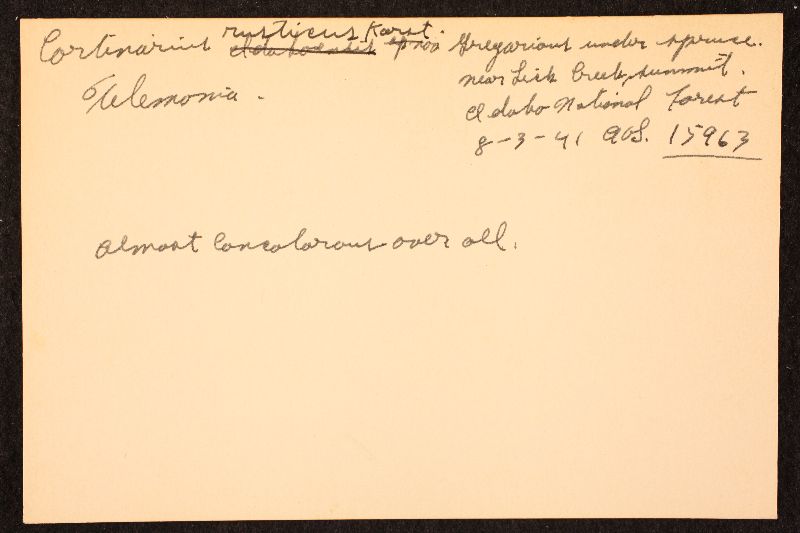 Cortinarius rusticus Karst.
idahoensis sp nov
Telemonia.
Gregarious under spruce.
near Lick Creek summit.
Idaho National Forest
8-3-41 AHS. 15963
almost concolorous over all.